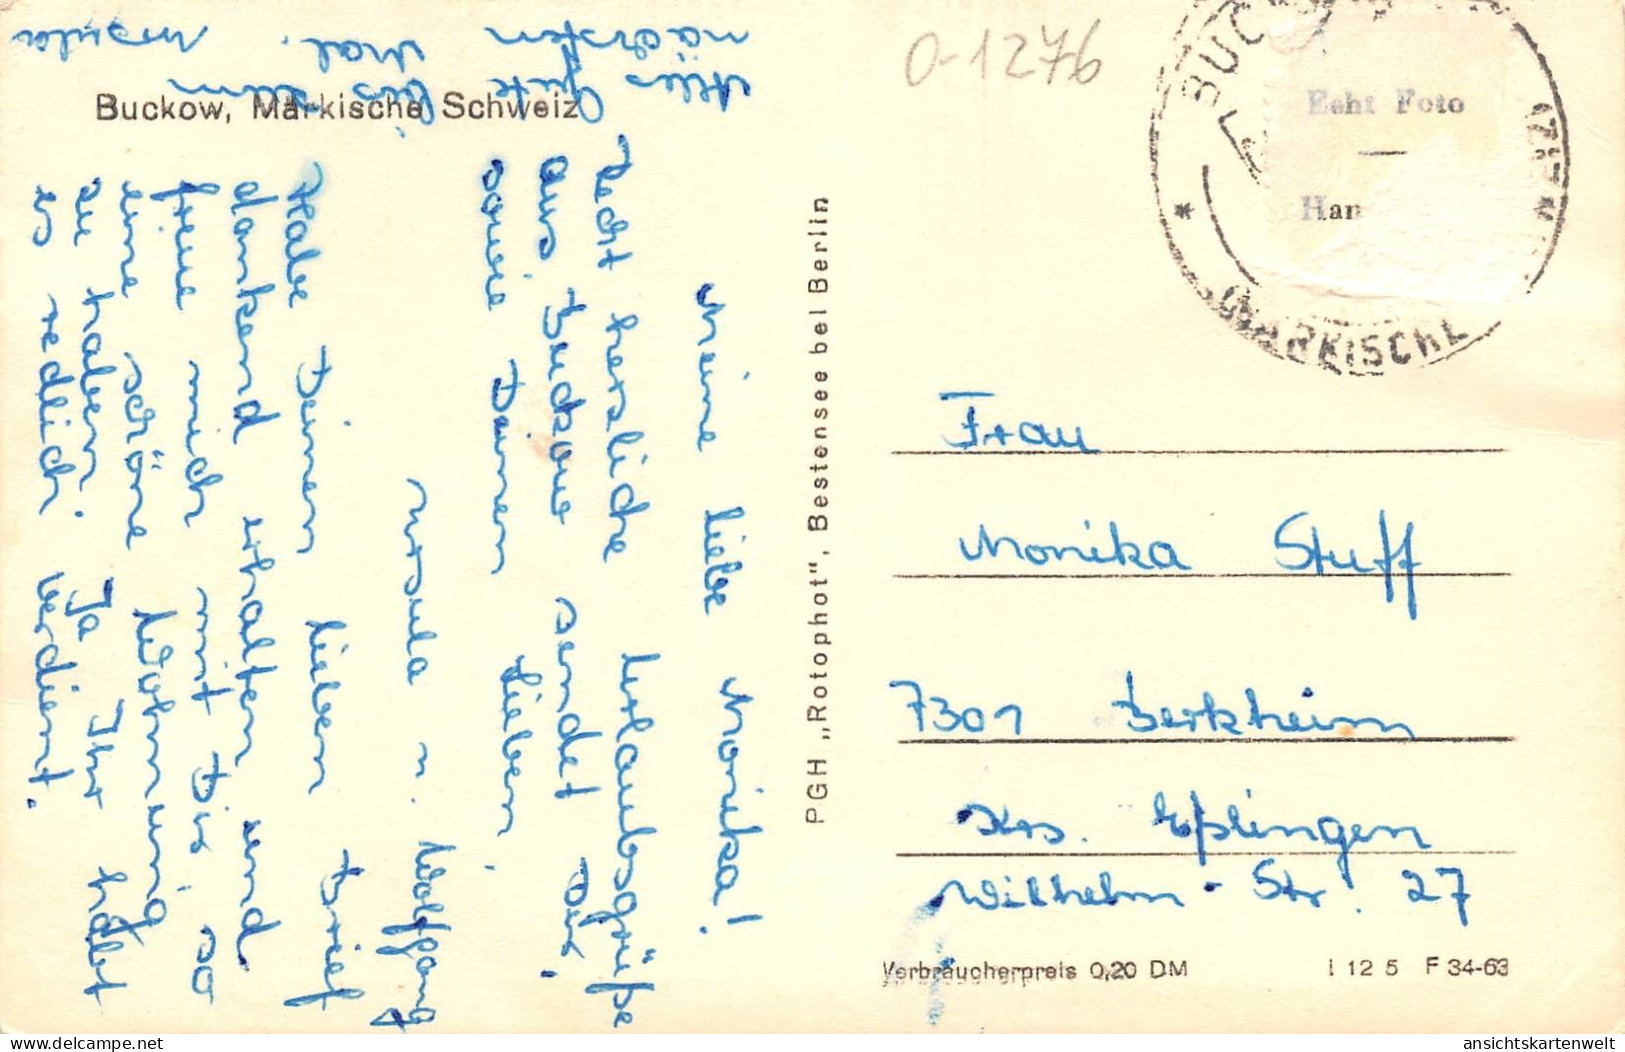 Buckow, Märkische Schweiz
Meine liebe Monika!
Recht herzliche Urlaubsgrüße
aus Buckow sendet Dir,
sowie Deinen Lieben,
Ursula u. Wolfgang
Habe Deinen lieben Brief
dankend erhalten und
freue mich mit Dir, so
eine schöne Wohnung
zu haben. Ja Ihr habt
es redlich verdient.
Alles Gute bis zum
nächsten Mal. Ursula
PGH „Rotophot", Bestensee bei Berlin
0-1276
BUCKOW
MÄRKISCHE
Echt Foto
Han
Frau
Monika Stuff
7301 Berkheim
Krs. Eßlingen
Wilhelm-Str. 27
Verbraucherpreis 0,20 DM
I 12 5 F 34-63
delcampe.net
ansichtskartenwelt